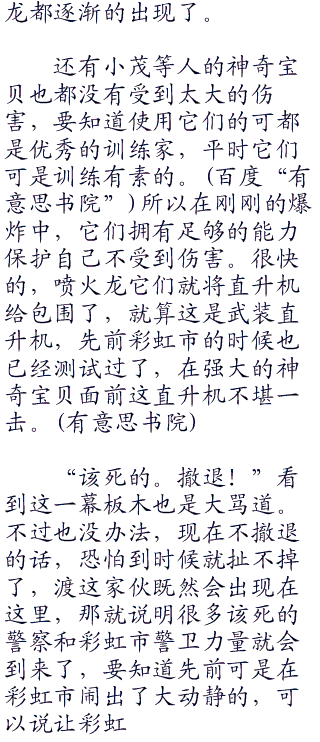 龙都逐渐的出现了。
还有小茂等人的神奇宝
贝也都没有受到太大的伤
害，要知道使用它们的可都
是优秀的训练家，平时它们
可是训练有素的。(百度“有
意思书院”)所以在刚刚的爆
炸中，它们拥有足够的能力
保护自己不受到伤害。很快
的，喷火龙它们就将直升机
给包围了，就算这是武装直
升机，先前彩虹市的时候也
已经测试过了，在强大的神
奇宝贝面前这直升机不堪一
击。(有意思书院)
“该死的。撤退！”看
到这一幕板木也是大骂道。
不过也没办法，现在不撤退
的话，恐怕到时候就扯不掉
了，渡这家伙既然会出现在
这里，那就说明很多该死的
警察和彩虹市警卫力量就会
到来了，要知道先前可是在
彩虹市闹出了大动静的，可
以说让彩虹